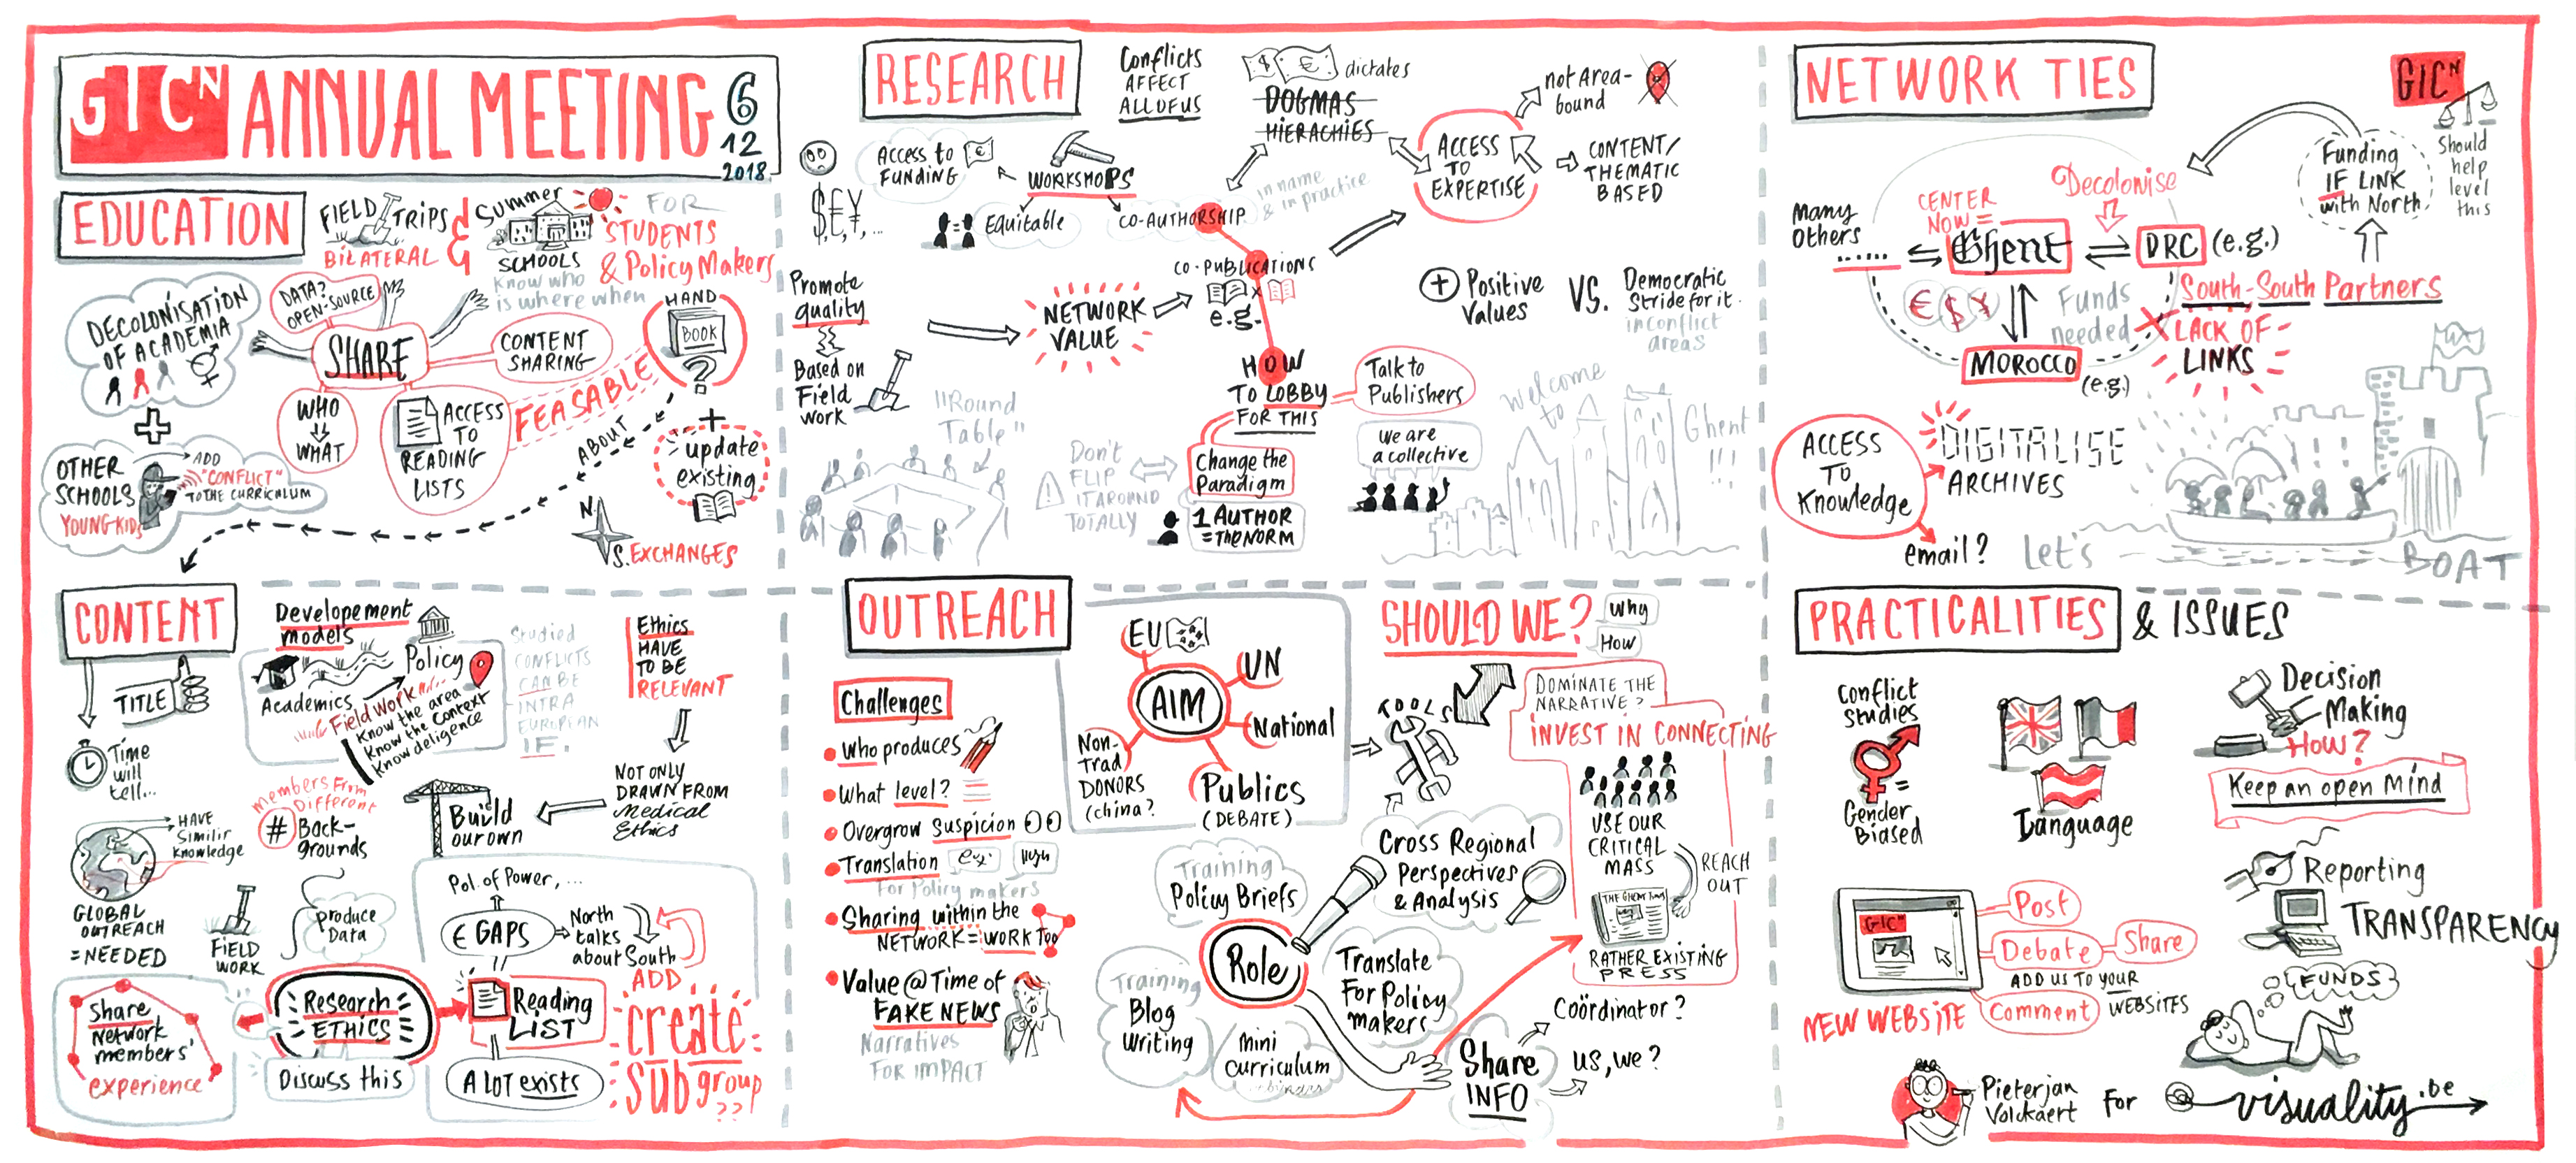 GICN ANNUAL MEETING
6
12
2018
EDUCATION
FIELD TRIPS
BILATERAL
&
Summer
SCHOOLS
Know who
is where when
FOR
STUDENTS
& Policy Makers
DECOLONISATION
OF ACADEMIA
+
OTHER
SCHOOLS
YOUNG KIDS
ADD
"CONFLICT"
TO THE CURRICULUM
DATA?
OPEN-SOURCE
SHARE
CONTENT
SHARING
WHO
WHAT
ACCESS
TO
READING
LISTS
FEASABLE
HAND
BOOK
?
+
update
existing
ABOUT
N.
S. EXCHANGES
RESEARCH
Conflicts
AFFECT
ALL OF US
$ €
dictates
DOGMAS
HIERACHIES
not Area-
bound
ACCESS
TO
EXPERTISE
CONTENT/
THEMATIC
BASED
Access to
FUNDING
€
WORKSHOPS
$,€,¥,...
=
Equitable
CO-AUTHORSHIP
in name
& in practice
Promote
quality
Based on
Field
work
NETWORK
VALUE
CO-PUBLICATIONS
e.g.
HOW
TO LOBBY
FOR THIS
Talk to
Publishers
we are
a collective
Change the
Paradigm
1 AUTHOR
= THE NORM
Don't
FLIP
IT AROUND
TOTALLY
"Round
Table"
+ Positive
Values
VS.
Democratic
Stride for it.
in conflict
areas
Welcome
to
Ghent
!!!
NETWORK TIES
GICN
Should
help
level
this
Funding
IF LINK
with North
Decolonise
CENTER
NOW =
Many
Others
......
Ghent
DRC (e.g.)
€ $ ¥
Funds
needed
MOROCCO
(e.g.)
South-South Partners
LACK OF
LINKS
ACCESS
TO
Knowledge
DIGITALISE
ARCHIVES
email?
Let's
BOAT
CONTENT
TITLE
Time
will
tell...
Developement
models
Policy
Academics
Field work
Know the area
Know the context
Know deligence
Studied
CONFLICTS
CAN BE
INTRA
EUROPEAN
IF.
Ethics
HAVE
TO BE
RELEVANT
NOT ONLY
DRAWN FROM
Medical
Ethics
Build
our own
HAVE
Similir
Knowledge
GLOBAL
OUTREACH
= NEEDED
members From
Different
# Back-
grounds
produce
Data
FIELD
WORK
Pol. of Power, ...
€ GAPS
North
talks
about South
ADD
Share
Network
members'
experience
Research
ETHICS
Discuss this
Reading
LIST
A LOT exists
create
subgroup
??
OUTREACH
Challenges
Who produces
What level?
Overgrow Suspicion
Translation
For Policy makers
Sharing within the
NETWORK = WORK TOO
Value @ Time of
FAKE NEWS
Narratives
FOR IMPACT
EU
UN
AIM
National
Non-
Trad
DONORS
(china?
Publics
(DEBATE)
SHOULD WE?
Why
How
TOOLS
DOMINATE THE
NARRATIVE?
INVEST IN CONNECTING
USE OUR
CRITICAL
MASS
REACH
OUT
RATHER EXISTING
PRESS
Training
Policy Briefs
Cross Regional
Perspectives
& Analysis
Role
Training
Blog
writing
mini
curriculum
Translate
For Policy
makers
Share
INFO
Coördinator?
us, we?
PRACTICALITIES & ISSUES
Conflict
Studies
=
Gender
Biased
Language
Decision
Making
HOW?
Keep an open Mind
GICN
Post
Debate
Share
ADD US TO YOUR
WEBSITES
Comment
NEW WEBSITE
Reporting
TRANSPARENCY
FUNDS
Pieterjan
Volckaert
For
visuality.be